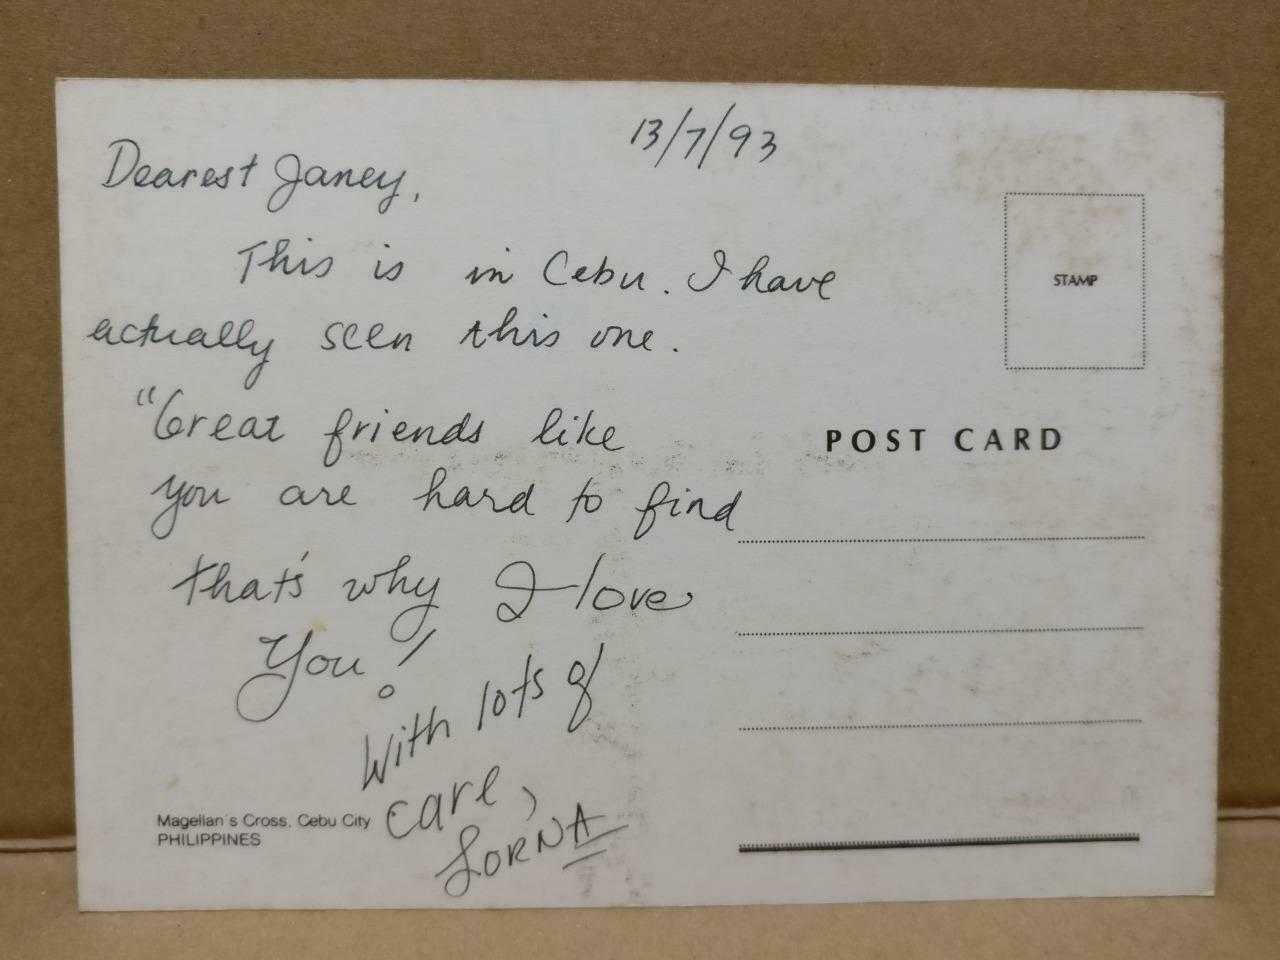 13/7/93
Dearest Janey,
This is in Cebu. I have
actually seen this one.
"Great friends like
you are hard to find
that's why I love
You!
With lots of
care,
LORNA
Magellan's Cross, Cebu City
PHILIPPINES
STAMP
POST CARD